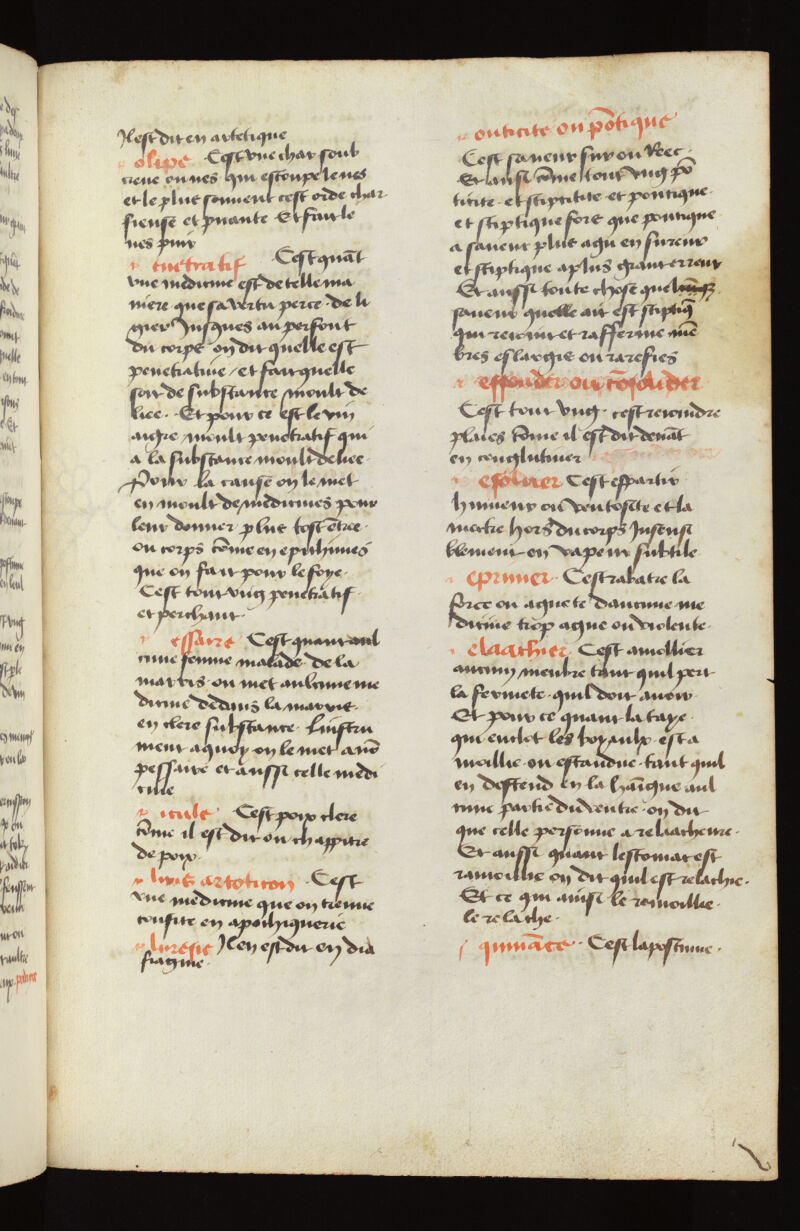 Il est dit en artetique
olipe Cest vne char soub
creue ou nes qui estoupe le nes
et le plus souuent cest orde char
sieuse et puante Et fait le
nes puir
enetratif Cest quāt
vne medicine est de telle ma
niere que sa vertu perce de li
gier Jusques au perfont
du corps on dit quelle est
penetratiue et fait quelle
soit de substance moult de
liee Et pour ce est le vin
aigre moult penetratif qui
a la substance moult deliee
Pour la cause on le met
en moult de medicines pour
leur donner plus tost ētree
ou corps cōme en epithimes
que on fait pour le foye
Cest tout vng penetratif
et perchant
essaire Cest quant aul
cune femme malade de la
marris on met aulcune me
dicine dedens la marris
en clere substance linstru
ment a quoy on le met a nō
pessaire et aussi celle medi
cine
icule Cest poix clere
cōme il est dit ou chappitre
de poix
liris artoticon Cest
vne medicine que on treuue
confite en apothiquerie
luresie Il en est dit en dia
fragme
onticite ou pōtique
Cest saueur sur ou vert
Et aussi cōme tout vng pō
ticite et stipticite et pontique
et stiptique fors que pontique
a saueur plus agu en sureur
et stiptique a plus grant erreur
Et aussi toute chose
saueur quelle ait est stiptiq̄
qui retient et rafferme mē
bres eslargis ou rarefies
essouder ou cōsolider
Cest tout vng cest reioindre
plaies cōme il est dit deuāt
en conglutiner
esoluer Cest espartir
humeur ou ventosite et la
mettre hors du corps Insensi
blement en vapeur subtile
eprimer Cest rabatre la
force ou aguete daucune me
dicine trop ague ou violente
elaachier Cest amollier
aucun menbre tant quil pert
la fermete quil doit auoir
Et pour ce quant la taye
qui enclot les boyaulx est a
moillie ou estandue tant quil
en destend en la hāngue aul
cune partie du ventre on dit
que celle personne a relacheure
Et aussi quant lestomac est
ramollie on dit quil est relachie
Et ce qui ainsi le ramoillie
le relache
quināce Cest lapostume